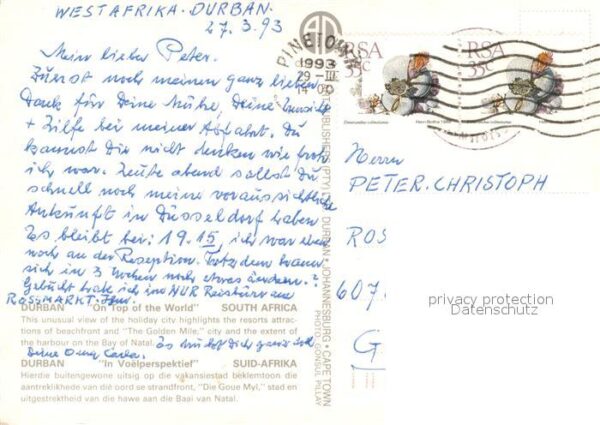 WESTAFRIKA. DURBAN.
27.3.93
Mein lieber Peter.
Zuerst noch meinen ganz lieben
Dank für Deine Mühe, Deine
+ Hilfe bei meiner Abfahrt. Du
kannst Dir nicht denken wie froh
ich war. Heute abend sollst Du
schnell noch meine voraussichtliche
Ankunft in Düsseldorf haben
Es bleibt bei: 19.15, ich war eben
noch an der Rezeption. Trotzdem kann
sich in 3 Wochen noch etwas ändern.?
Gebucht habe ich im NUR Reisebüro am
ROSSMARKT.
DURBAN "On Top of the World" SOUTH AFRICA
This unusual view of the holiday city highlights the resorts attrac-
tions of beachfront and "The Golden Mile," city and the extent of
the harbour on the Bay of Natal.
Es Dich ganz
Deine Oma
DURBAN "In Voëlperspektief" SUID-AFRIKA
Hierdie buitengewone uitsig op die vakansiestad beklemtoon die
aantreklikhede van dié oord se strandfront, "Die Goue Myl," stad en
uitgestrektheid van die hawe aan die Baai van Natal.
PUBLISHERS (PTY) LTD. DURBAN · JOHANNESBURG · CAPE TOWN
PHOTO: GONSUL PILLAY
PINETOWN
1993
29 -III
14 -00
RSA
35c
RSA
35c
Herrn
PETER. CHRISTOPH
ROS
607
G
privacy protection
Datenschutz